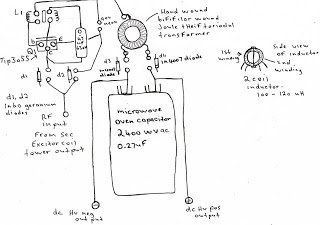 L1
neon
Hand wound
bifilar wound
Joule thief toriodal
transformer
Tip3055
C
B
E
d1
d2
d3
d4
1n4007 diode
d1, d2
In60 germanium
diodes
RF
input
From sec
Exciter coil
tower output
microwave
oven capacitor
2400 wvac
0.27uF
dc Hv neg
output
dc Hv pos
output
1st
winding
Side view
of inductor
2nd
winding
2 coil
inductor-
100 - 120 uH